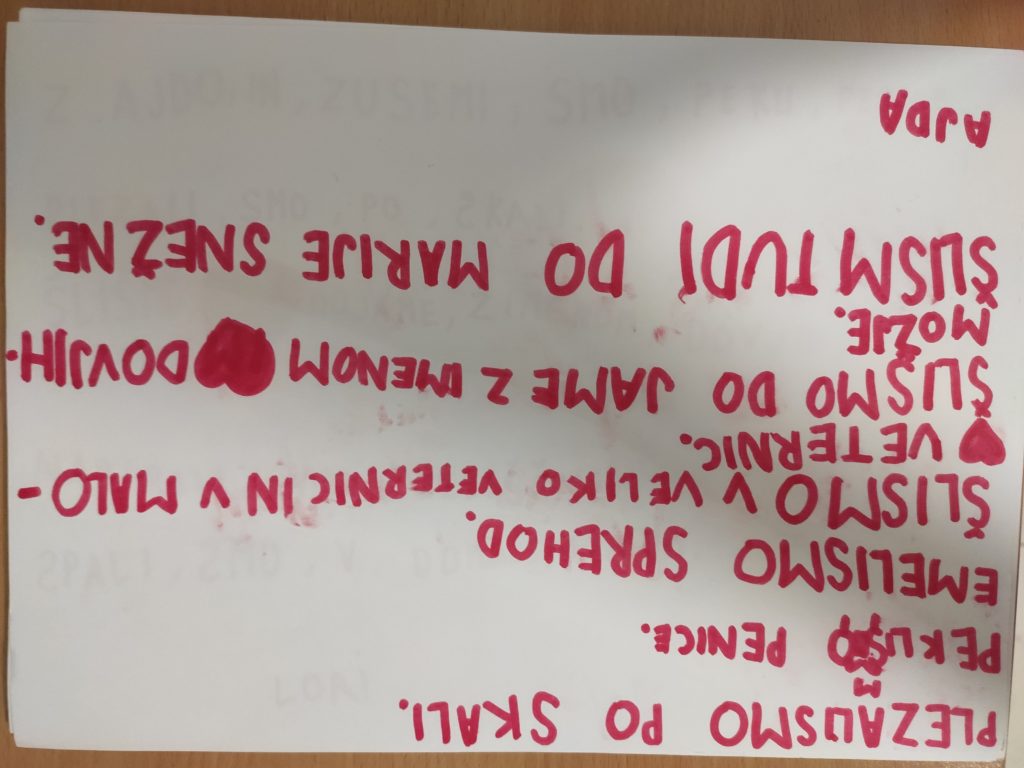 PLEZALISMO PO SKALI.
PEKLISMO PENICE.
EMELISMO SPREHOD.
ŠLISMO V VELIKO VETERNIC IN V MALO-
VETERNIC.
ŠLISMO DO JAME Z IMENOM DOVJIH.
MOŽJE.
ŠLISM TUDI DO MARIJE SNEŽNE.
AJDA